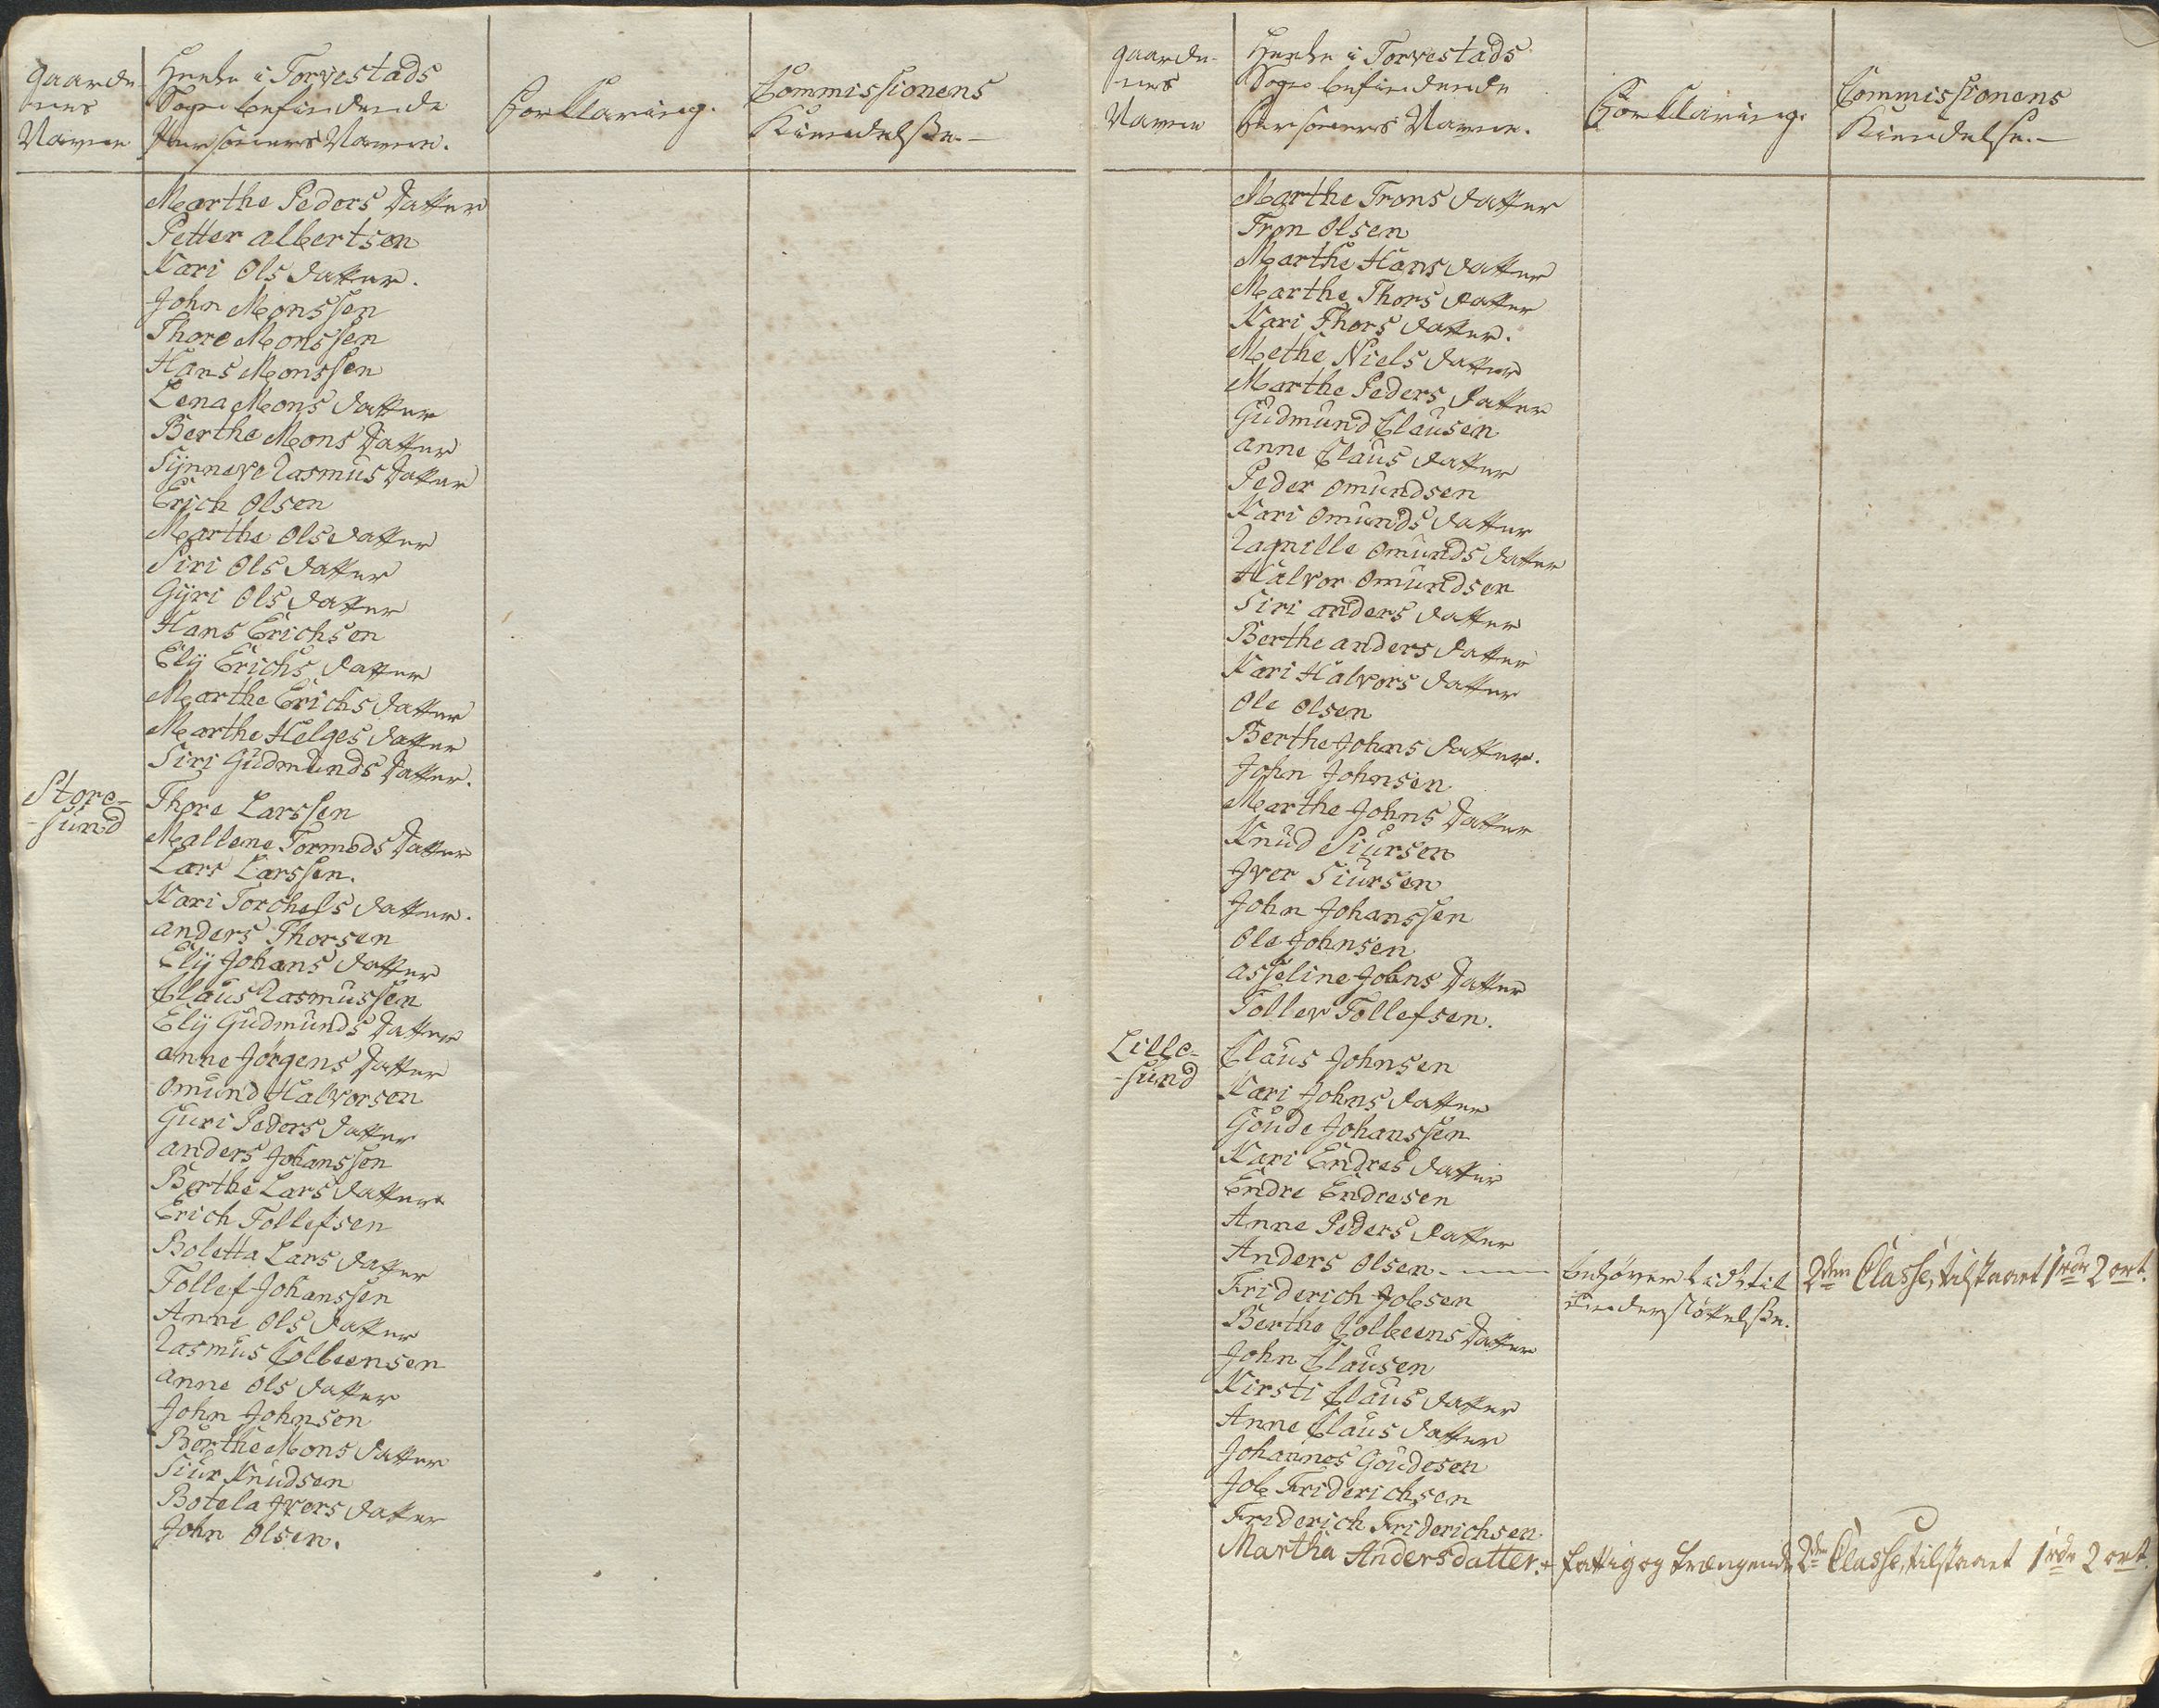 Gaarde-
nes
Navne
Heele i Torvestads
Sogn befindende
Personers Navne.
Forklaring.
Commissionens
Kiendelsse.-
Marthe Peders Datter
Petter Albertsen
Kari Ols datter.
John Monssen
Thore Monssen
Hans Monssen
Lena Mons datter
Berthe Mons Datter
Synneve Rasmus Datter
Erich Olsen
Marthe Ols datter
Siri Ols datter
Gÿri Ols datter
Hans Erichsen
Elÿ Erichs datter
Marthe Erichs datter
Marthe Helges datter
Siri Gudmunds Datter.
Store-
-sund
Thore Larssen
Mallene Tormods Datter
Lars Larssen.
Kari Torchels datter.
Anders Thorsen
Elÿ Johans datter
Claus Rasmussen
Elÿ Gudmunds Datter
Anne Jørgens Datter
Omund Halvorsen
Guri Peders datter
Anders Johanssen
Berthe Lars datter
Erich Tollefsen
Boletta Lars datter
Tollef Johanssen
Anne Ols datter
Rasmus Colbeensen
Anne Ols datter
John Johnsen
Berthe Mons datter
Siur Knudsen
Botela Jvers datter
John Olsen.
Gaarde-
nes
Navne
Heele i Torvestads
Sogn befindende
Personers Navne.
Forklaring.
Commissionens
Kiendelse.-
Marthe Trons datter
Tron Olsen
Marthe Hans datter
Marthe Thors datter
Kari Thors datter.
Methe Niels datter
Marthe Peders datter
Gudmund Clausen
Anne Claus datter
Peder Omundsen
Kari Omunds datter
Ragnille Omunds datter
Halvor Omundsen
Siri Anders datter
Berthe Anders datter
Kari Halvors datter
Ole Olsen
Berthe Johns datter.
John Johnsen
Marthe Johns Datter
Knud Siursen
Jver Siursen
John Johanssen
Ole Johnsen
Asseline Johns Datter
Tollev Tollefsen.
Lille-
-sund
Claus Johnsen
Kari Johns datter
Goude Johanssen
Kari Endres datter
Endre Endresen
Anne Peders datter
Anders Olsen - behøver lidt til 2den Classe, tilstaaet 1 rdr 2 ort.
Friderich Jobsen understøttelsse.
Berthe Colbeens Datter
John Clausen
Kirsti Claus datter
Anne Claus datter
Johannes Goudesen
Job Friderichsen
Friderich Friderichsen
Martha Andersdatter. fattig og trængende 2den Classe, tilstaaet 1 rdr 2 ort.